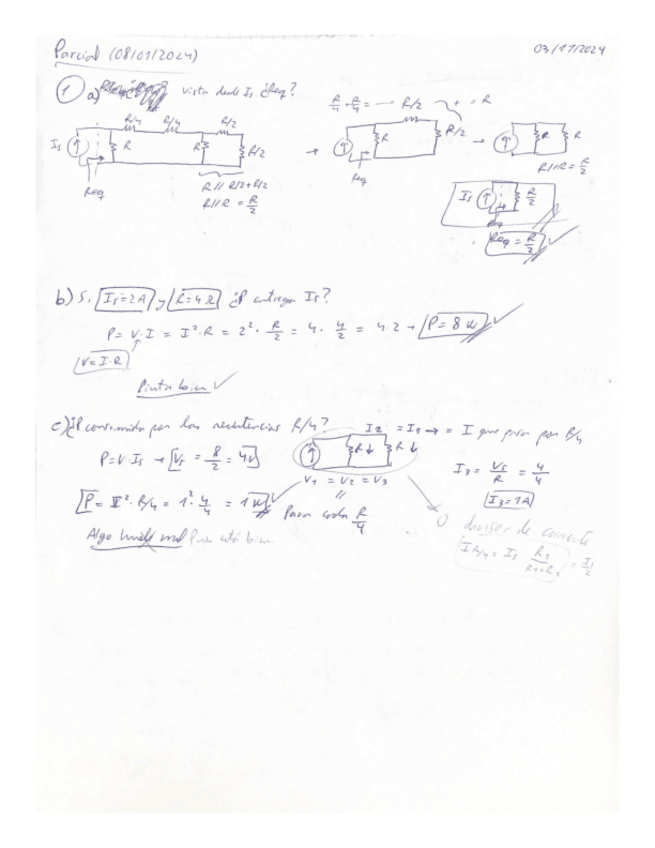 Parcial (08/01/2024)
03/11/2024
1 a) vista desde Is ¿Req?
R/4 R/4 R/2
Is R R R/2
Req
R // R/2+R/2
R//R = R/2
R/4 + R/4 = → R/2 + = R
R R/2
Req
R R
R//R = R/2
Is R/2
Req
Req = R/2 ✓
b) Si Is=2A y R=4Ω ¿P entrega Is?
P = V·I = I²·R = 2² · R/2 = 4 · 4/2 = 4·2 → P = 8 W ✓
V=I·R
Pinta bien ✓
c) ¿P consumida por las resistencias R/4?
I2 = I3 → = I que pasa por R/4
P=V·Is → Vs = 8/2 = 4V
R ↓ R ↓
V1 = V2 = V3
I3 = Vs/R = 4/4
I3 = 1A
P = I²·R/4 = 1²·4/4 = 1W ✓
Para cada R/4
Algo mal Pues está bien.
O divisor de corriente
I R/4 = Is · R2/R1+R2 = Is/2